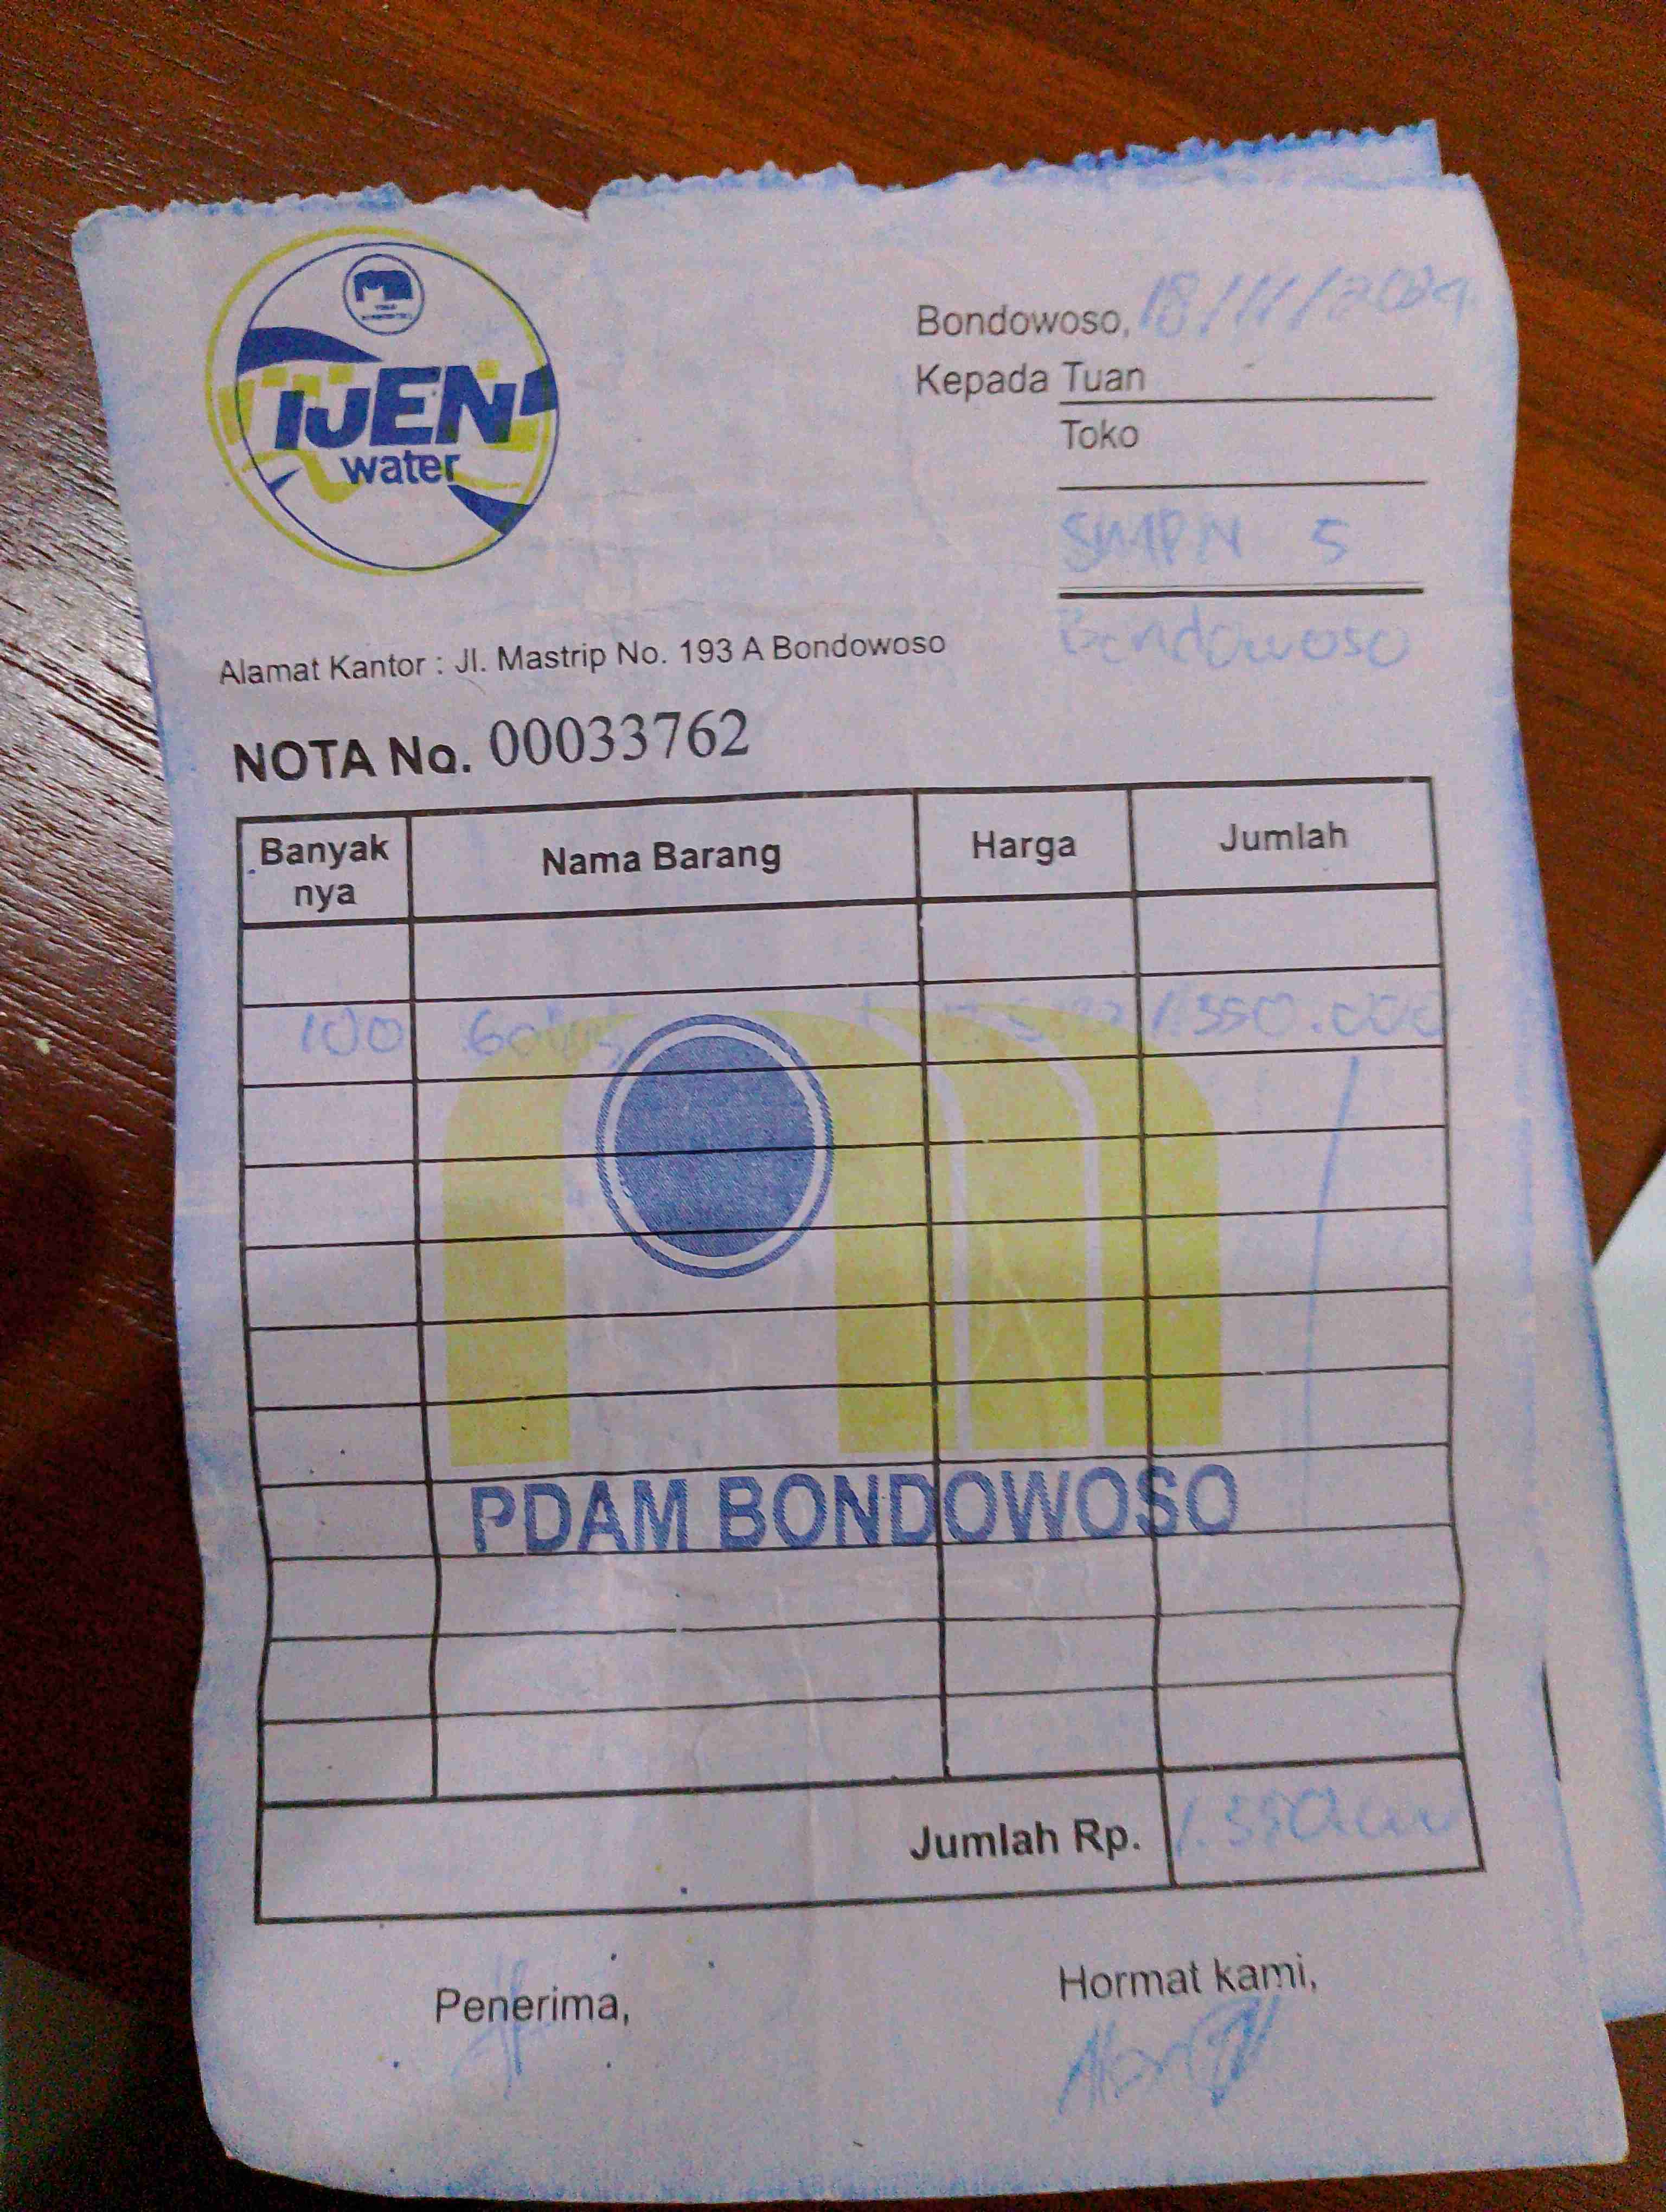 IJEN
water
Bondowoso, 18/11/2024
Kepada Tuan
Toko
SMPN 5
Bondowoso
Alamat Kantor : Jl. Mastrip No. 193 A Bondowoso
NOTA No. 00033762
Banyak nya Nama Barang Harga Jumlah
100 1.350.000
PDAM BONDOWOSO
Jumlah Rp. 1.350.000
Penerima, Hormat kami,